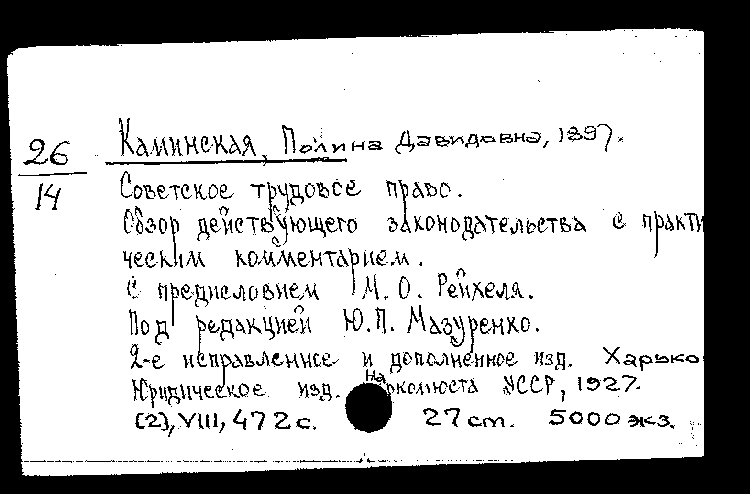 26
14
Каминская, Полина Давидовна, 1897.
Советское трудовое право.
Обзор действующего законодательства с практи
ческим комментарием.
С предисловием М. О. Рейхеля.
Под редакцией Ю.П. Мазуренко.
2-е исправленное и дополненное изд. Харько
Юридическое изд. Наркомюста УССР, 1927.
(2), VIII, 472 с. 27 cm. 5000 экз.